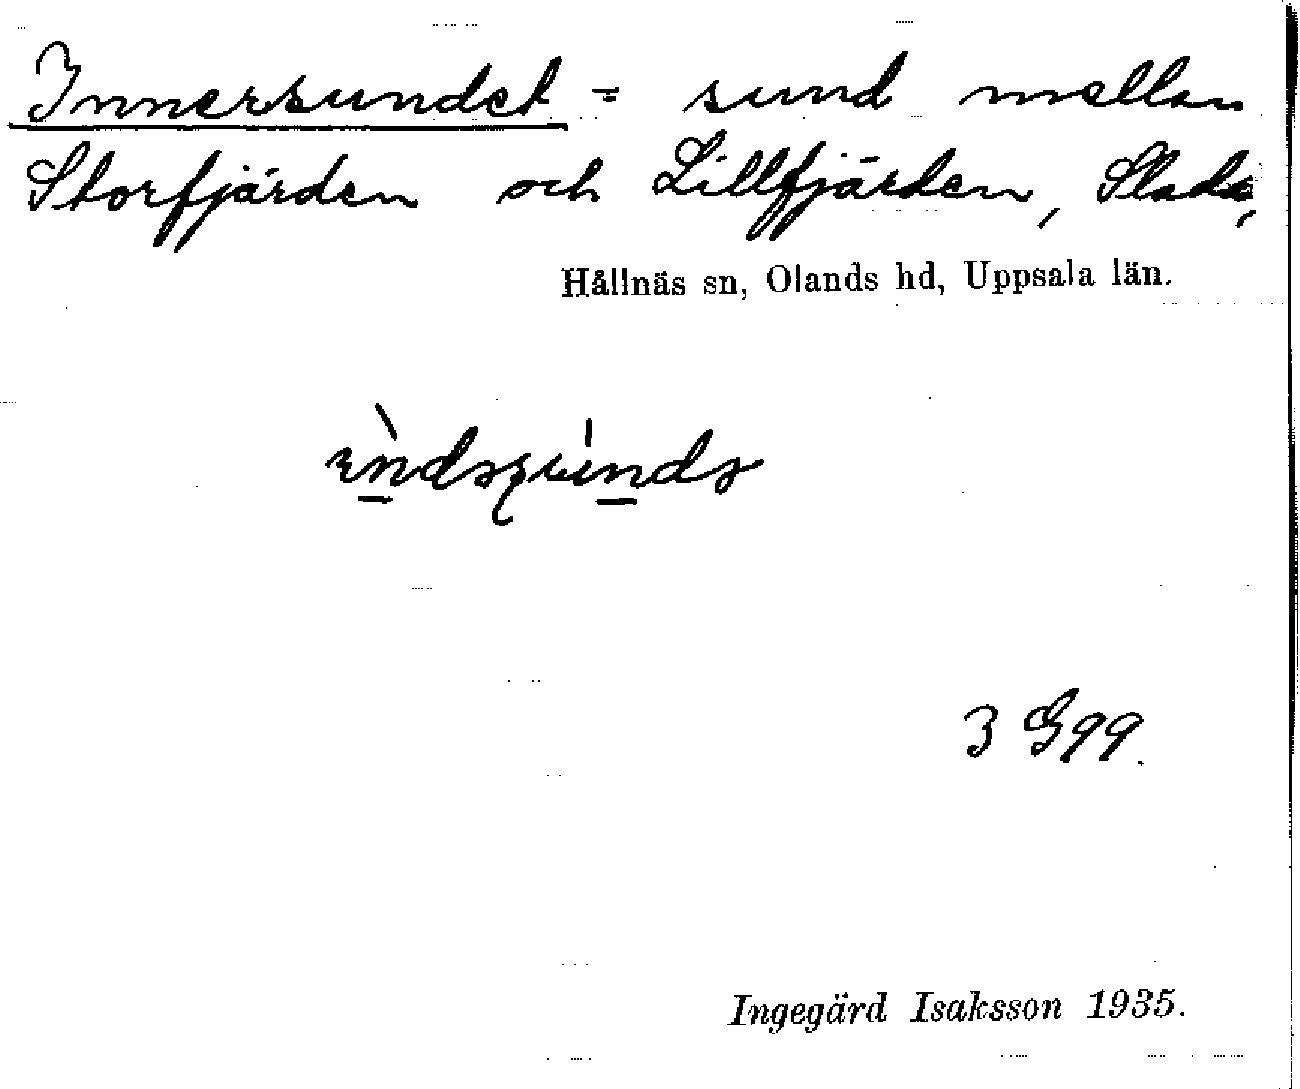 Innersundet = sund mellan
Storfjärden och Lillfjärden, Slada,
Hållnäs sn, Olands hd, Uppsala län.
3 G99.
Ingegärd Isaksson 1935.